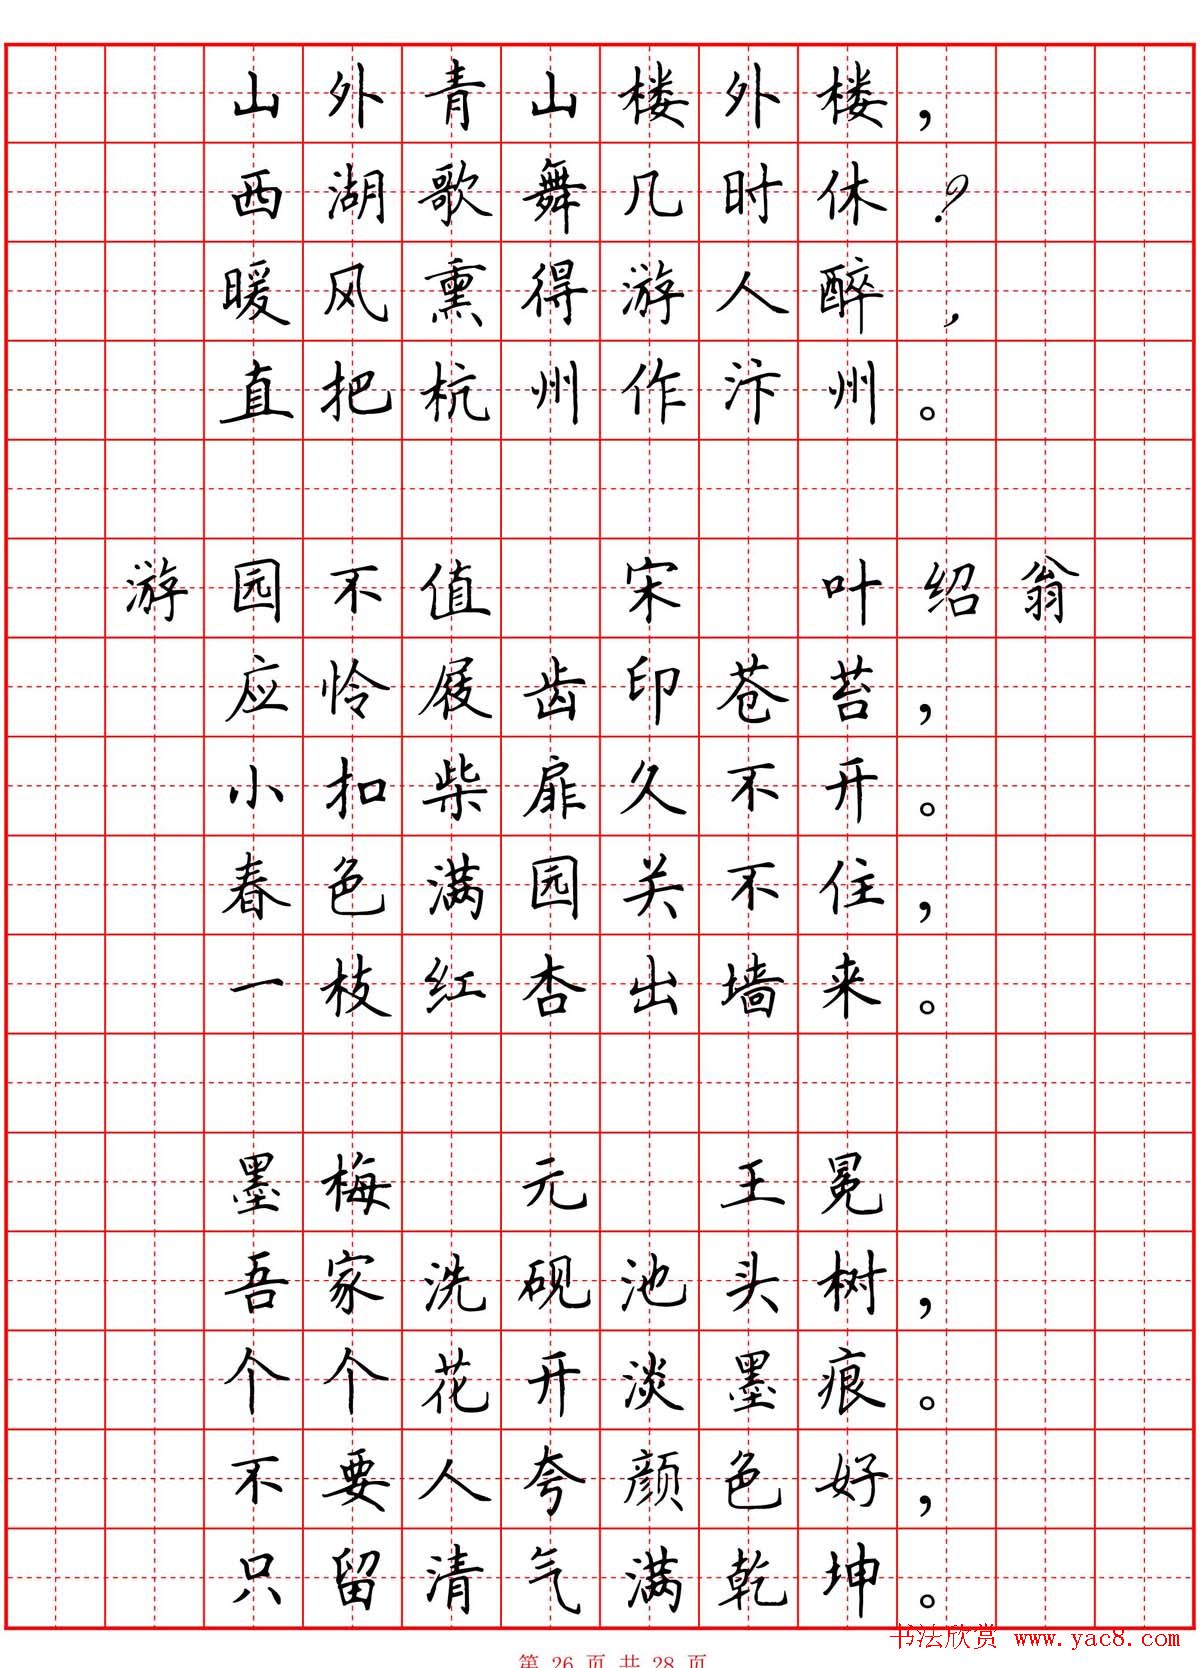 山外青山楼外楼，
西湖歌舞几时休？
暖风熏得游人醉，
直把杭州作汴州。
游园不值 宋 叶绍翁
应怜屐齿印苍苔，
小扣柴扉久不开。
春色满园关不住，
一枝红杏出墙来。
墨梅 元 王冕
吾家洗砚池头树，
个个花开淡墨痕。
不要人夸颜色好，
只留清气满乾坤。
书法欣赏 www.yac8.com
第 26 页 共 28 页